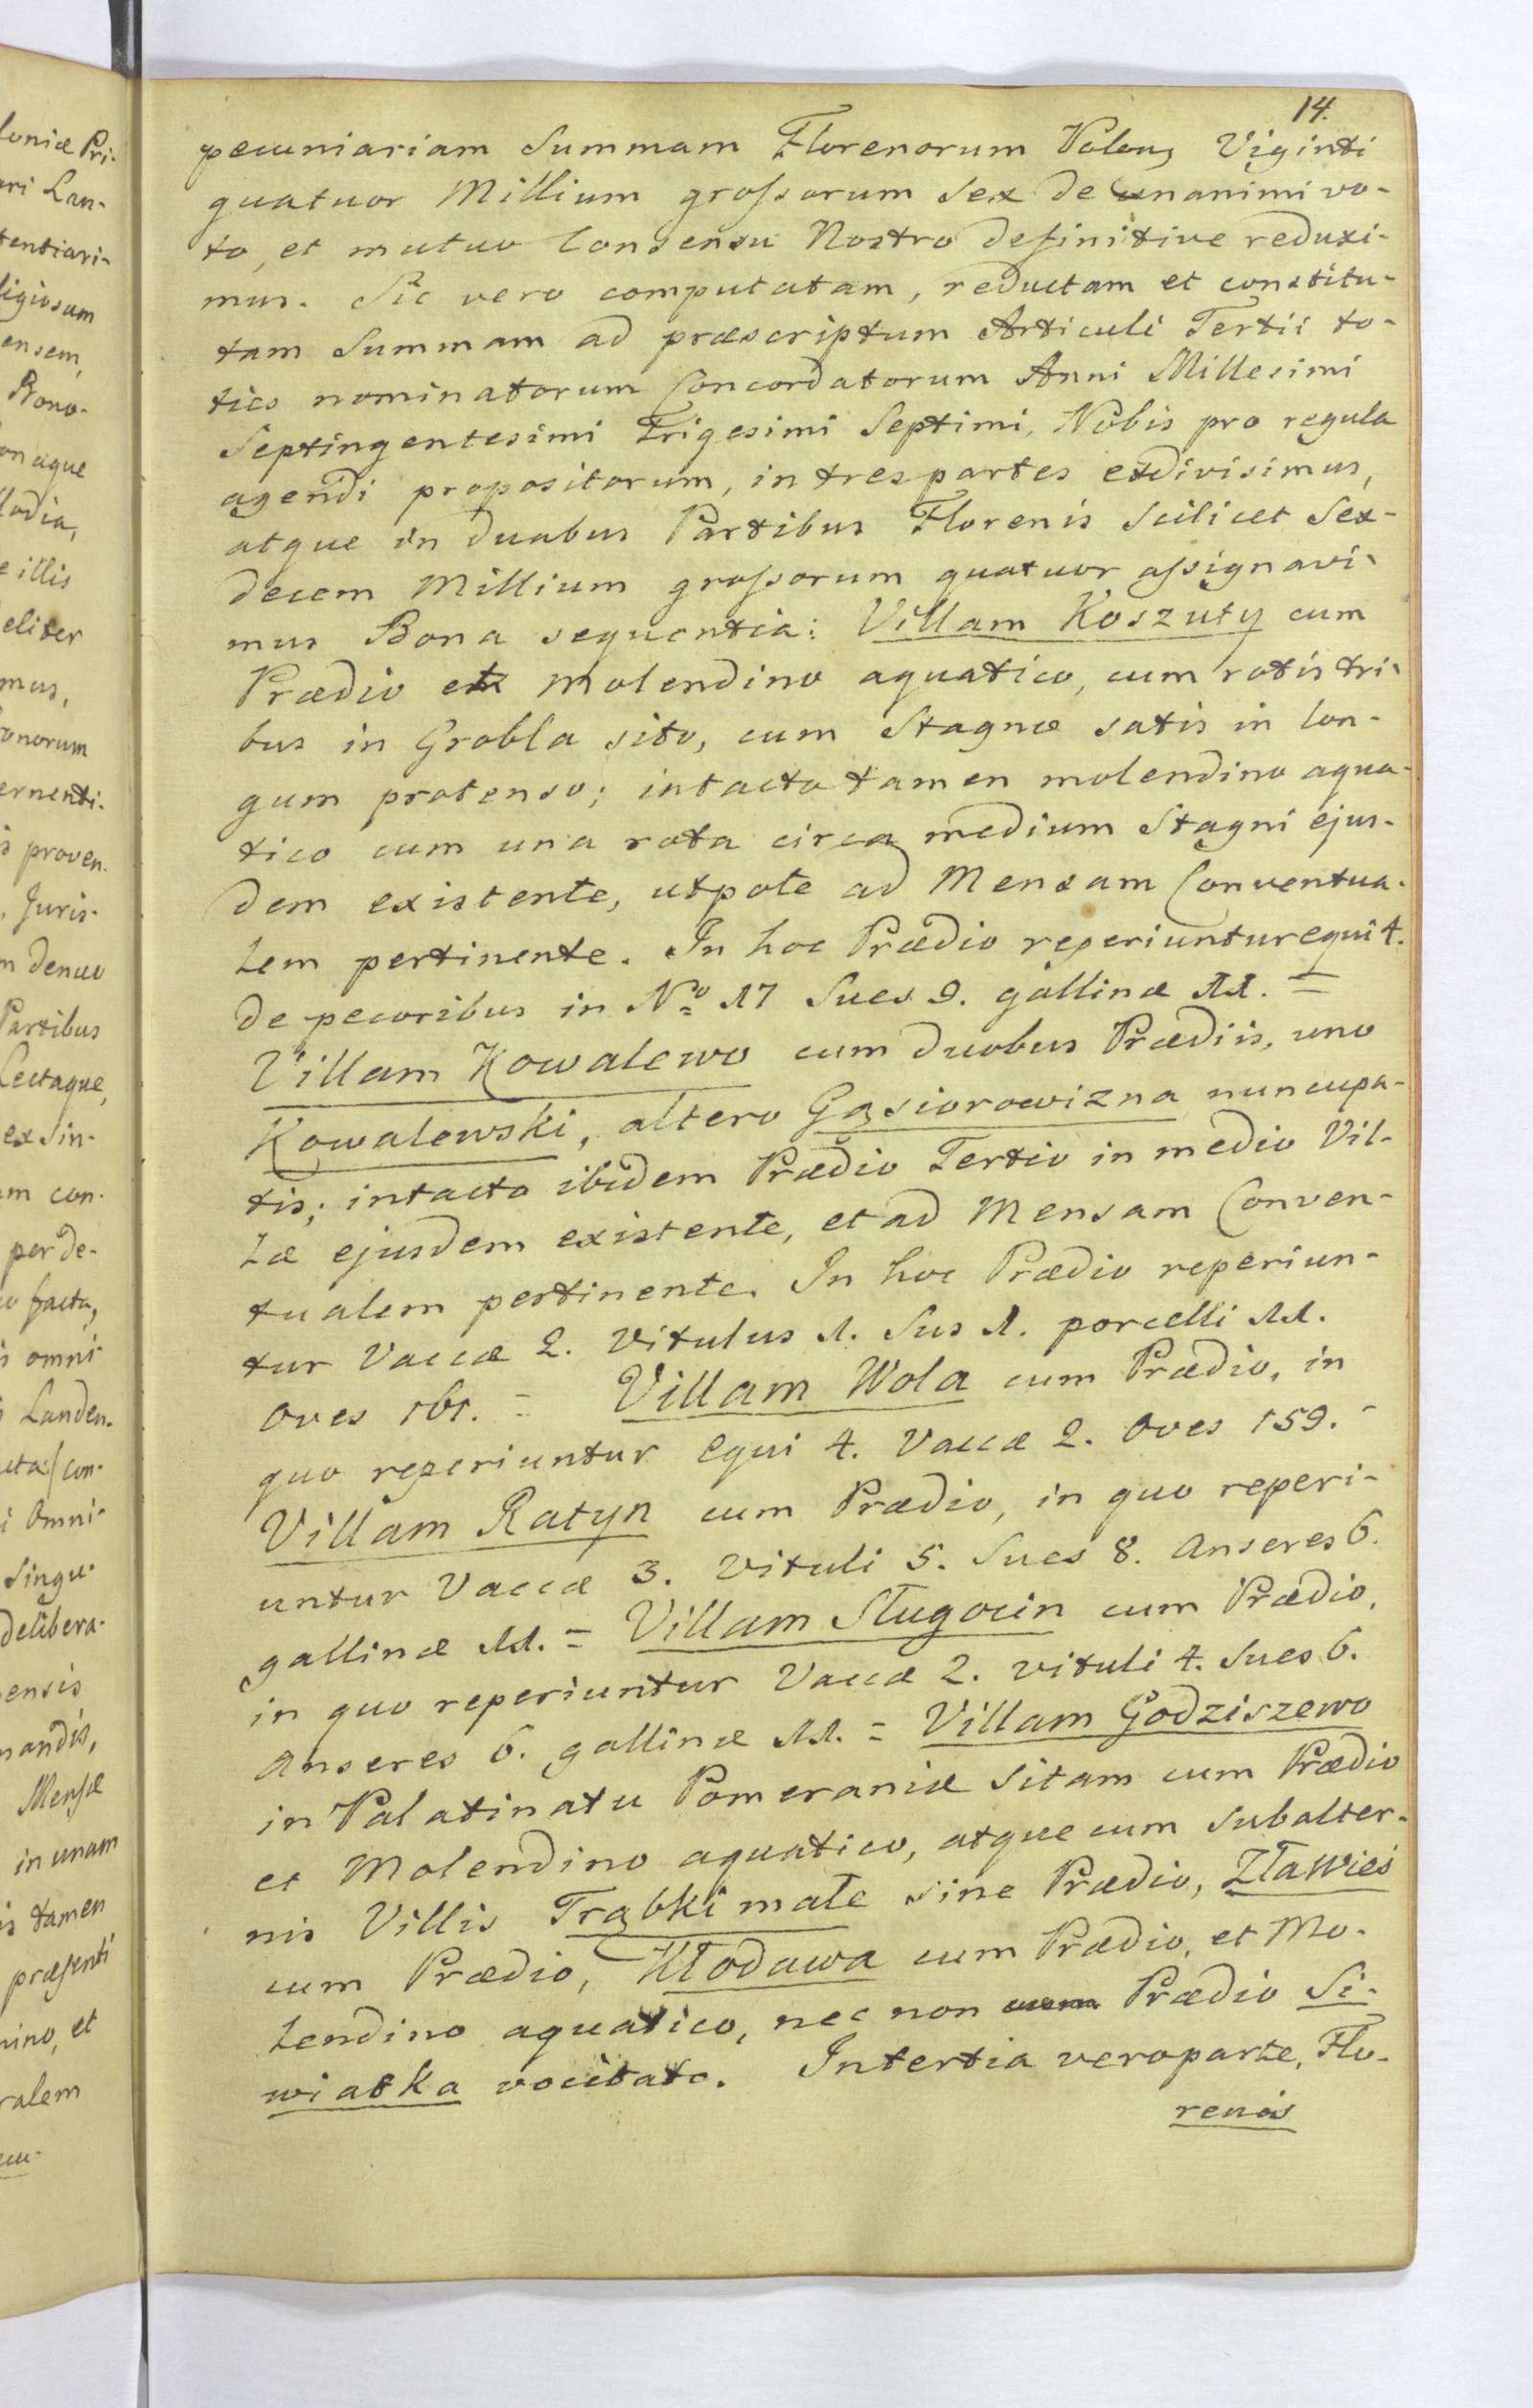 14.
pecuniariam Summam Florenorum Polon, Viginti
quatuor Millium grossorum Sex de unanimi vo-
to, et mutuo Consensu Nostro definitive reduxi-
mus. Sic vero computatam, reductam et constitu-
tam Summam ad præscriptum Articuli Tertii to-
ties nominatorum Concordatorum Anni Millesimi
Septingentesimi Trigesimi Septimi, Nobis pro regula
agendi propositorum, in tres partes et divisimus,
atque in duabus Partibus Florenis Scilicet Sex-
decem Millium grossorum quatuor assignavi-
mus Bona sequentia: Villam Koszuty cum
Prædio et Molendino aquatico, cum rotis tri-
bus in Grobla sito, cum Stagno satis in lon-
gum protenso; intacto tamen molendino aqua-
tico cum una rota circa medium Stagni ejus-
dem existente, utpote ad Mensam Conventua-
lem pertinente. In hoc Prædio reperiuntur equi 4.
de pecoribus in No 17 Sues 9. gallinæ 11. =
Villam Kowalewo cum duobus Prædiis, uno
Kowalewski, altero Gąsiorowizna nuncupa-
tis; intacto ibidem Prædio Tertio in medio Vil-
læ ejusdem existente, et ad Mensam Conven-
tualem pertinente. In hoc Prædio reperiun-
tur Vaccæ 2. Vitulus 1. Sus 1. porcelli 11.
Oves 161. = Villam Wola cum Prædio, in
quo reperiuntur Equi 4. Vaccæ 2. Oves 159. -
Villam Ratyn cum Prædio, in quo reperi-
untur Vaccæ 3. Vituli 5. Sues 8. Anseres 6.
gallinæ 11. = Villam Sługocin cum Prædio,
in quo reperiuntur Vaccæ 2. vituli 4. Sues 6.
Anseres 6. gallinæ 11. = Villam Godziszewo
in Palatinatu Pomeraniæ Sitam cum Prædio
et Molendino aquatico, atque cum Subalter-
nis Villis Trąbki małe sine Prædio, Zławieś
cum Prædio, Kłodawa cum Prædio, et Mo-
lendino aquatico, nec non cum Prædio Si-
wiatka vocitato. In tertia vero parte, Flo-
renis
loniæ Pri-
ari Lan-
tentiari-
ligiosam
ensem,
Bono-
onaque
lodia,
e illis
eliter
mus,
onorum
ernenti-
s proven-
, Juris-
m denuo
Partibus
lectaque,
ex Sin-
am con-
per de-
o facta,
s omni
Landen-
cta: con-
i Omni-
Singu-
delibera-
ensis
nandis,
Mensæ
in unam
is tamen
præsenti
nino, et
ralem